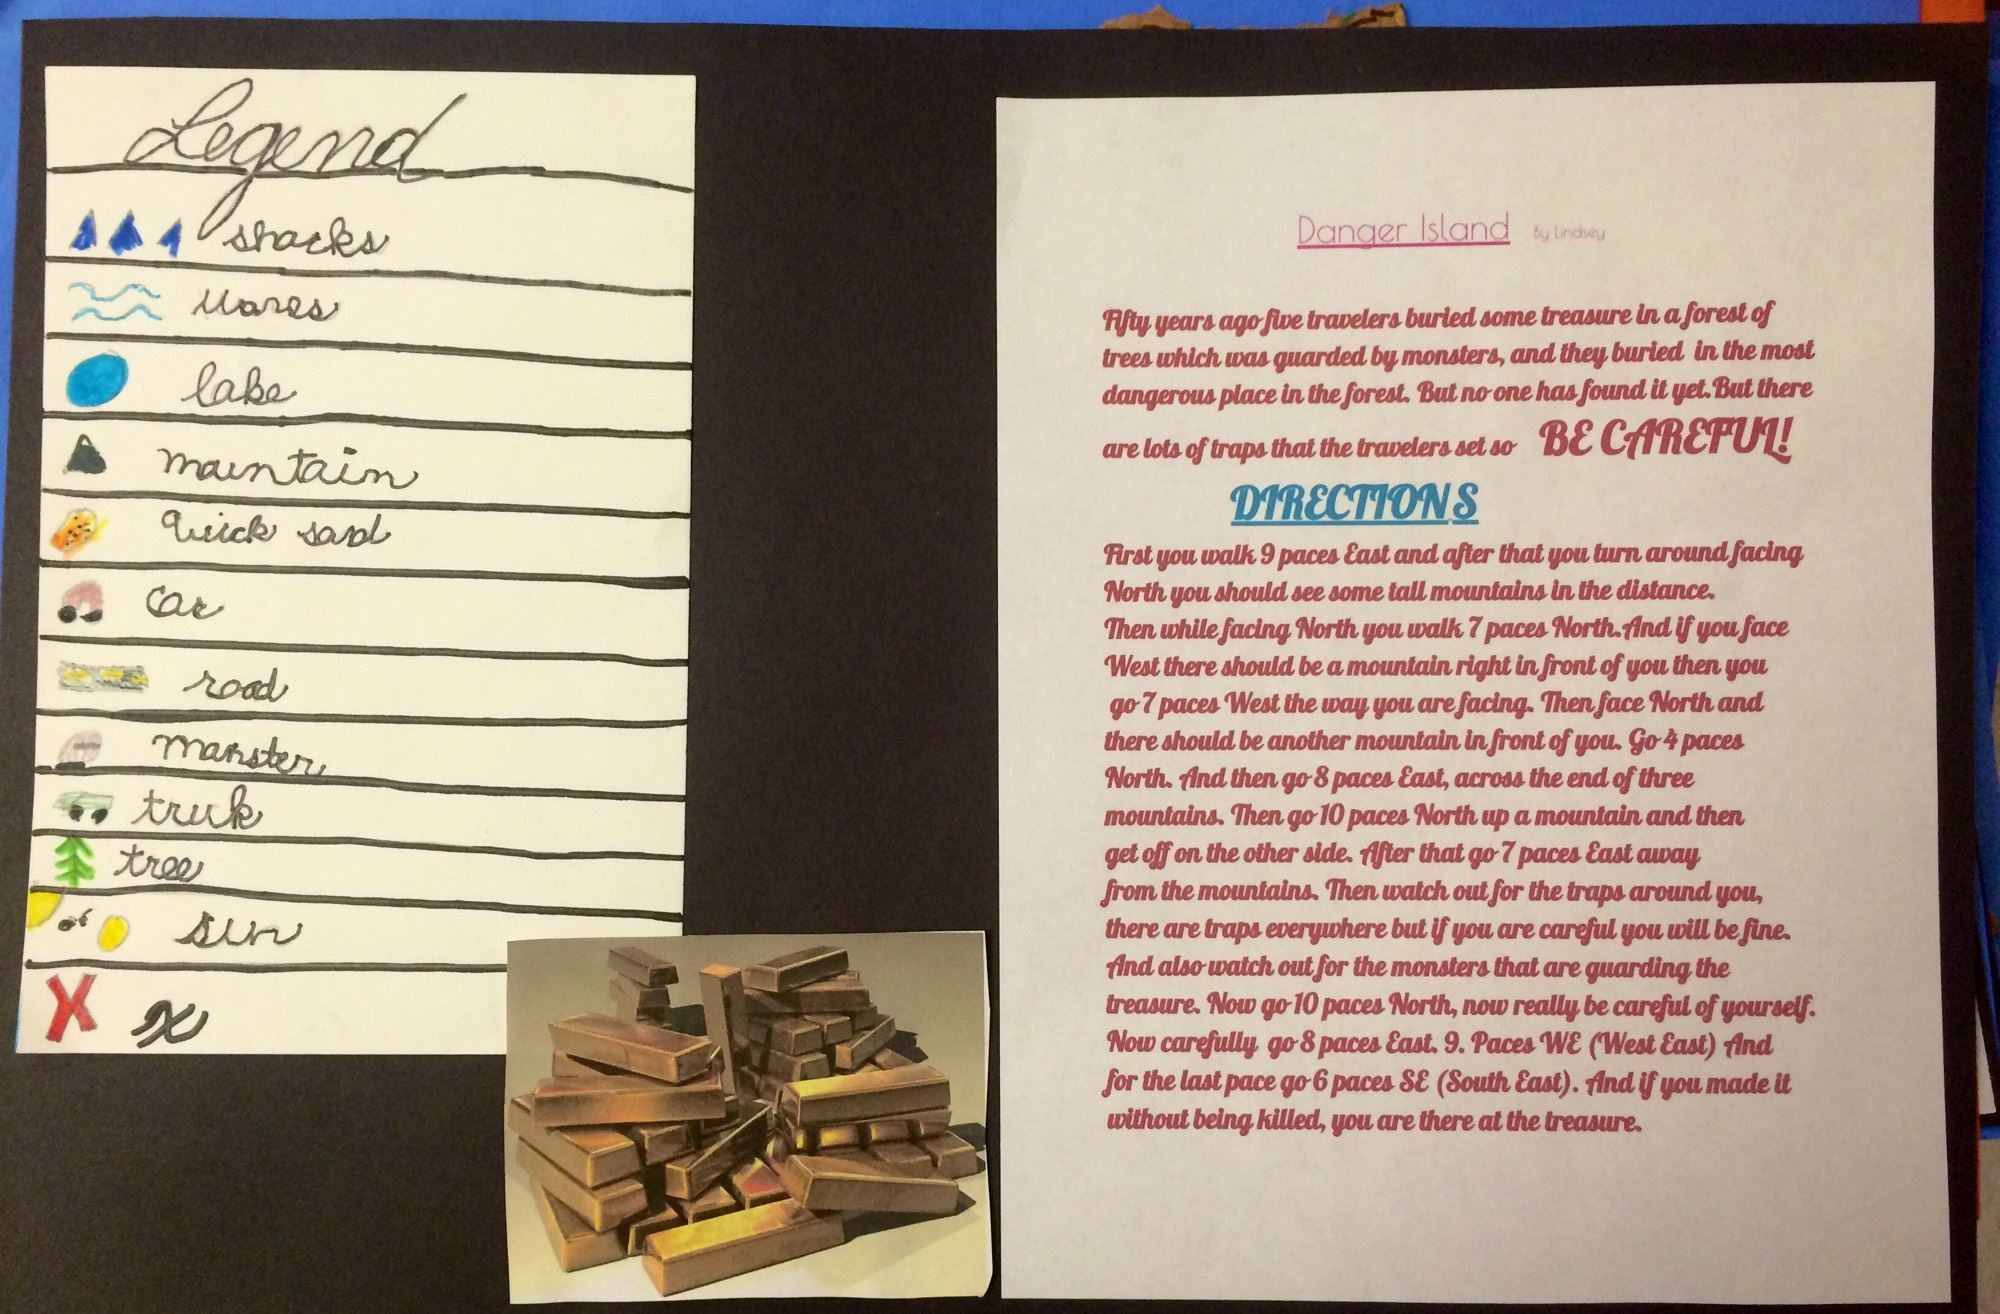 Legend
sharks
waves
lake
mountain
Quick sand
car
road
monster
truk
tree
sun
X x
Danger Island By Lindsey
Fifty years ago five travelers buried some treasure in a forest of
trees which was guarded by monsters, and they buried in the most
dangerous place in the forest. But no one has found it yet.But there
are lots of traps that the travelers set so BE CAREFUL!
DIRECTIONS
First you walk 9 paces East and after that you turn around facing
North you should see some tall mountains in the distance.
Then while facing North you walk 7 paces North.And if you face
West there should be a mountain right in front of you then you
go 7 paces West the way you are facing. Then face North and
there should be another mountain in front of you. Go 4 paces
North. And then go 8 paces East, across the end of three
mountains. Then go 10 paces North up a mountain and then
get off on the other side. After that go 7 paces East away
from the mountains. Then watch out for the traps around you,
there are traps everywhere but if you are careful you will be fine.
And also watch out for the monsters that are guarding the
treasure. Now go 10 paces North, now really be careful of yourself.
Now carefully go 8 paces East. 9. Paces WE (West East) And
for the last pace go 6 paces SE (South East). And if you made it
without being killed, you are there at the treasure.